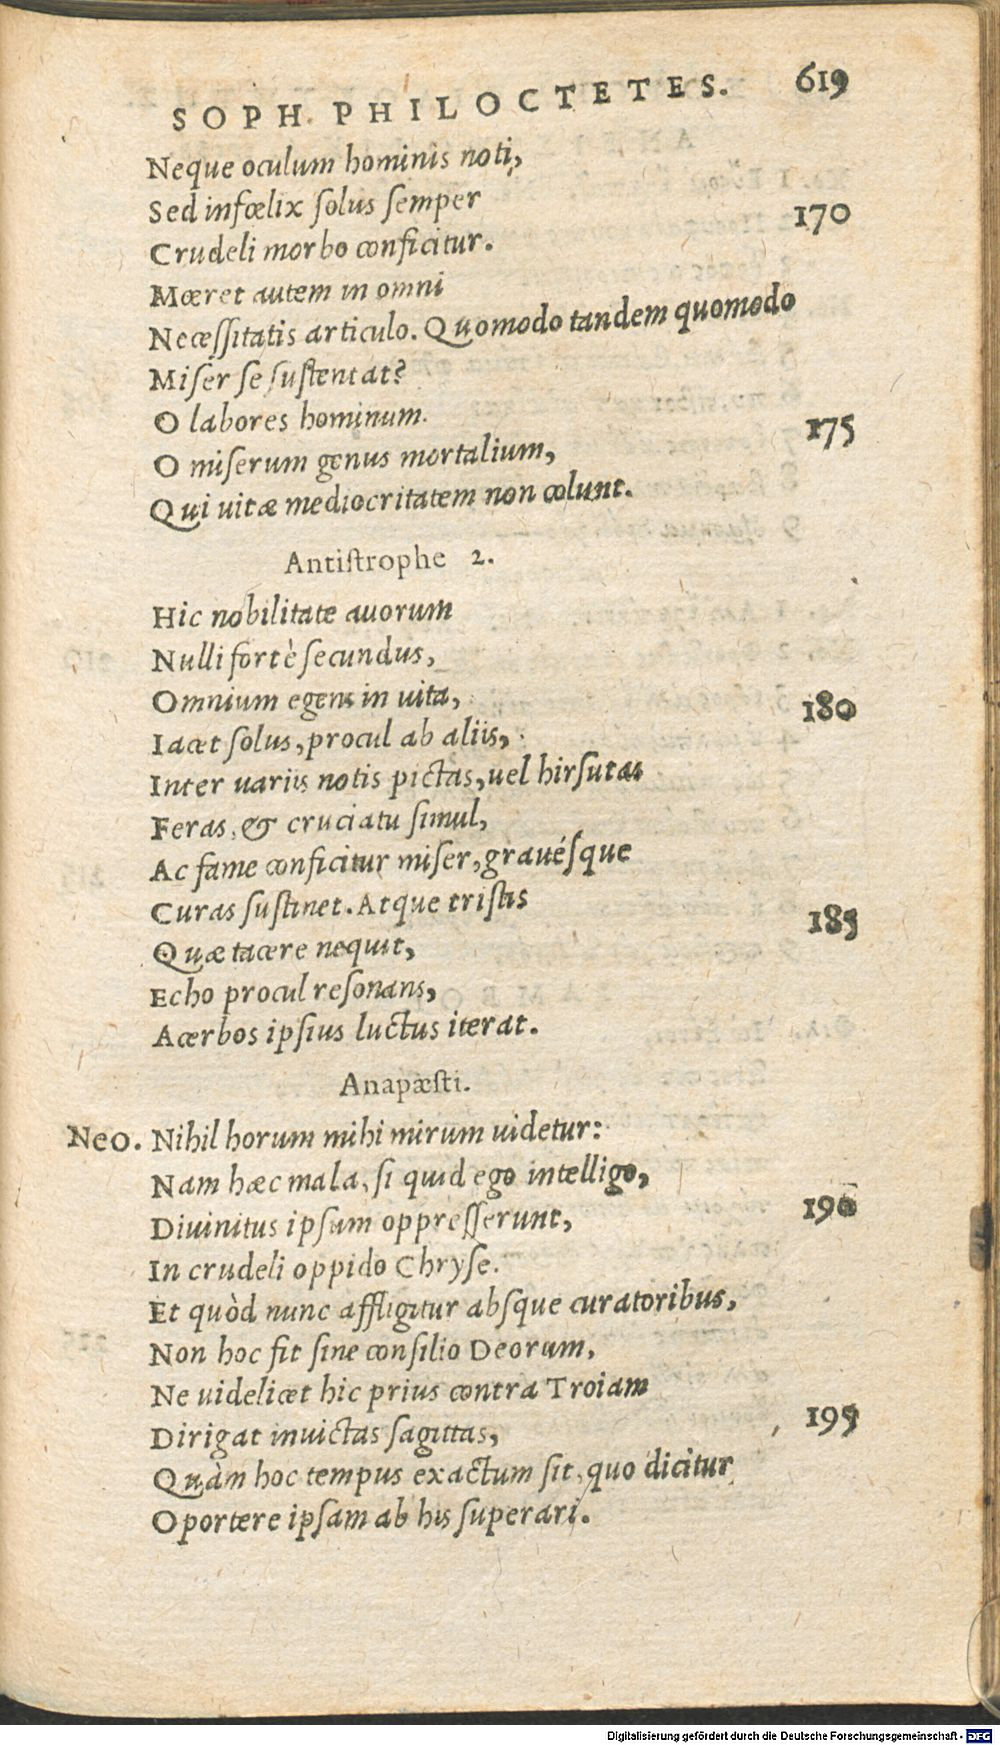 SOPH. PHILOCTETES. 619
Neque oculum hominis noti,
Sed infœlix solus semper 170
Crudeli morbo conficitur.
Mœret autem in omni
Necessitatis articulo. Quomodo tandem quomodo
Miser se sustentat?
O labores hominum. 175
O miserum genus mortalium,
Qui uitæ mediocritatem non colunt.
Antistrophe 2.
Hic nobilitate auorum
Nulli fortè secundus,
Omnium egens in uita, 180
Iacet solus, procul ab aliis,
Inter uariis notis pictas, uel hirsutas
Feras, & cruciatu simul,
Ac fame conficitur miser, grauésque
Curas sustinet. Atque tristis 185
Quæ tacere nequit,
Echo procul resonans,
Acerbos ipsius luctus iterat.
Anapæsti.
Neo. Nihil horum mihi mirum uidetur:
Nam hæc mala, si quid ego intelligo,
Diuinitus ipsum oppresserunt, 190
In crudeli oppido Chryse.
Et quòd nunc affligitur absque curatoribus,
Non hoc fit sine consilio Deorum,
Ne uidelicet hic prius contra Troiam
Dirigat inuictas sagittas, 195
Quàm hoc tempus exactum sit, quo dicitur
Oportere ipsam ab his superari.
Digitalisierung gefördert durch die Deutsche Forschungsgemeinschaft - DFG